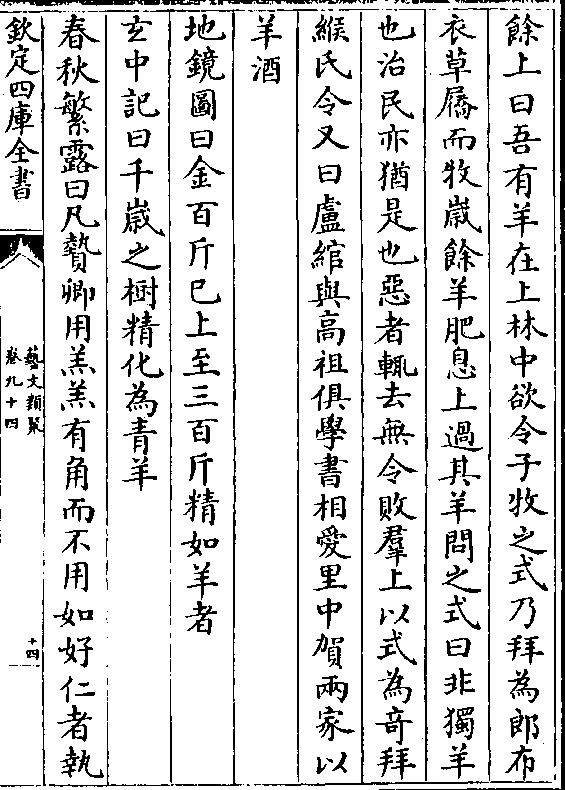 餘上曰吾有羊在上林中欲令子牧之式乃拜為郎布
衣草屩而牧嵗餘羊肥息上過其羊問之式曰非獨羊
也治民亦猶是也惡者輒去無令敗羣上以式為竒拜
緱氏令又曰盧綰與高祖俱學書相愛里中賀兩家以
羊酒
地鏡圖曰金百斤已上至三百斤精如羊者
玄中記曰千嵗之樹精化為青羊
春秋繁露曰凡贄卿用羔羔有角而不用如好仁者執
欽定四庫全書
藝文類聚
卷九十四
十四